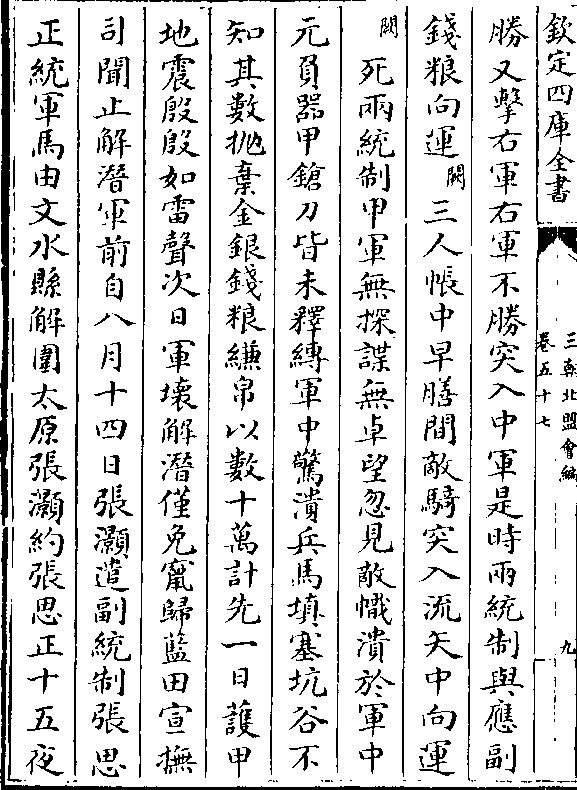 欽定四庫全書
三朝北盟會編
卷五十七
九
勝又擊右軍右軍不勝突入中軍是時兩統制與應副
錢粮向運闕三人帳中早膳間敵騎突入流矢中向運
闕死兩統制甲軍無探諜無卓望忽見敵幟潰於軍中
元負器甲鎗刀皆未釋縳軍中驚潰兵馬填塞坑谷不
知其數抛棄金銀錢粮縑帛以數十萬計先一日護甲
地震殷殷如雷聲次日軍壊解潛僅免竄歸藍田宣撫
司聞止解潛軍前自八月十四日張灝遣副統制張思
正統軍馬由文水縣解圍太原張灝約張思正十五夜